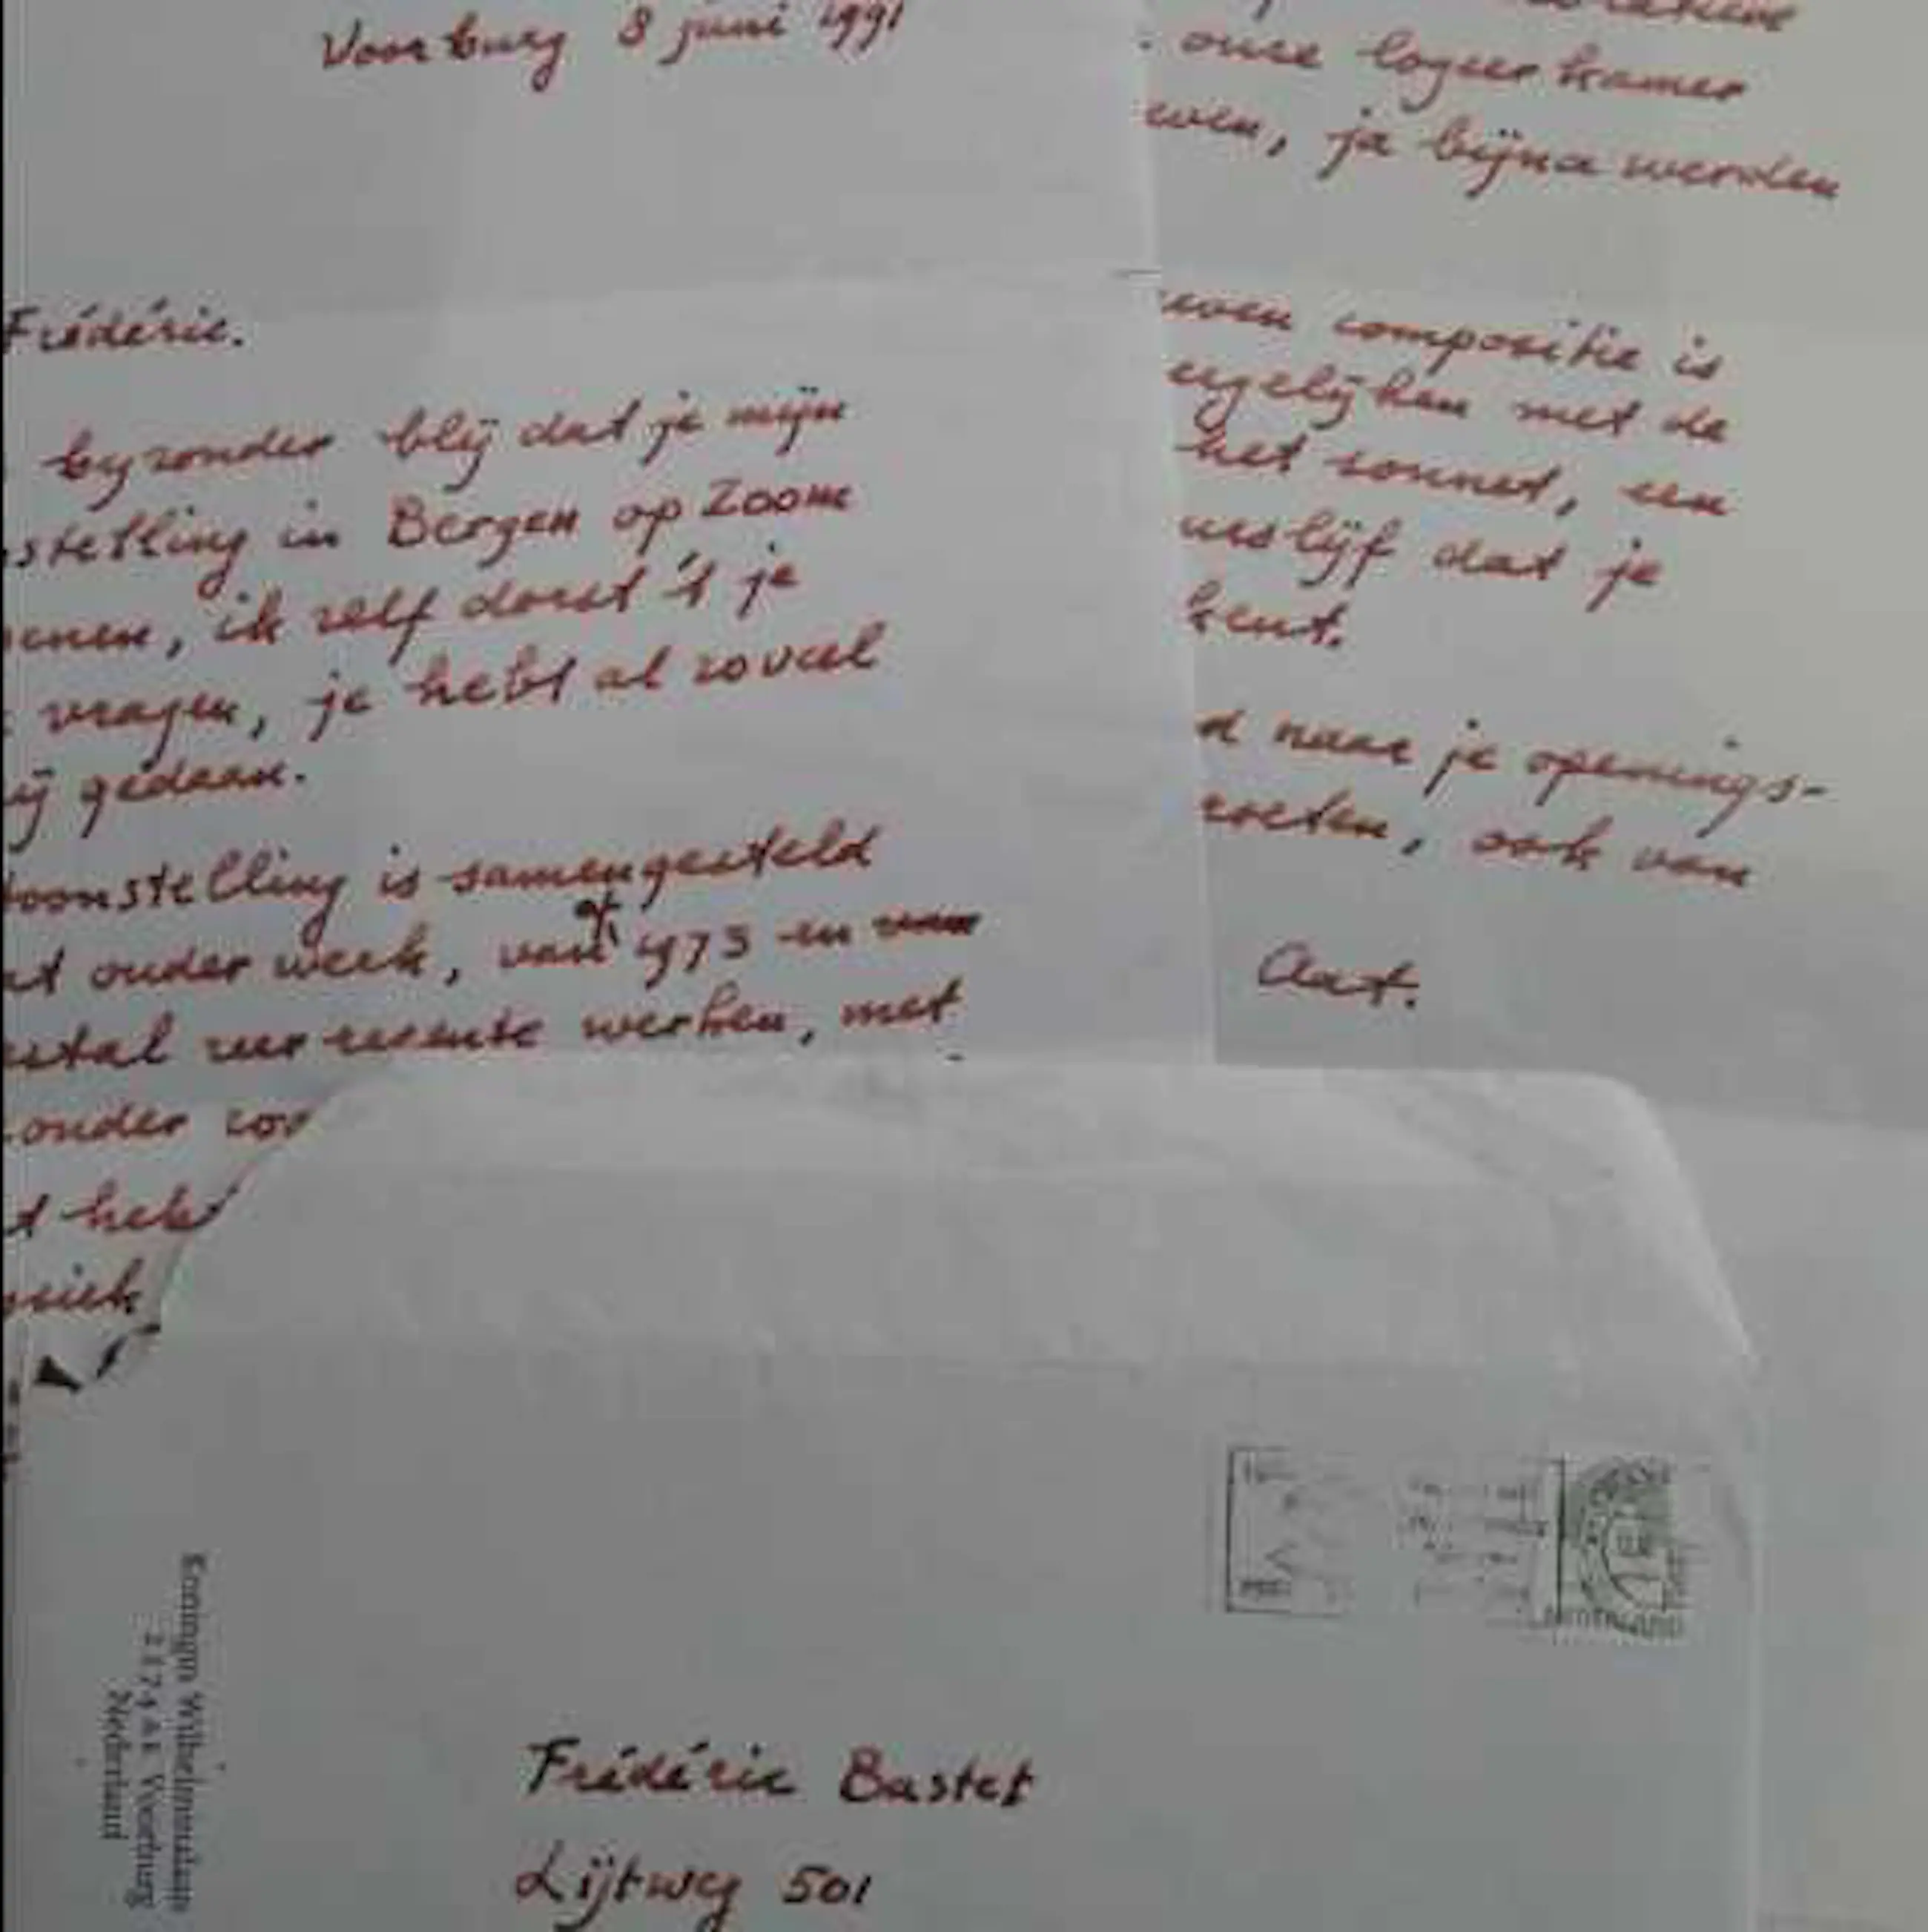 Voorburg 8 juni 1991
Frédéric.
byzonder blij dat je mijn
stelling in Bergen op Zoom
enen, ik zelf dorst 't je
vragen, je hebt al zoveel
ij gedaan.
toonstelling is samengesteld
at ouder werk, van af 1973 en van
estal zeer recente werken, met
zonder
t hebt
ziek
onze logeerkamer
even, ja bijna werden
even compositie is
ergelijken met de
het sonnet, een
urslijf dat je
kent.
d naar je openings-
roeten, ook van
Aat.
Koningin Wilhelminalaan
Voorburg
Nederland
Frédéric Bastet
Lijtweg 501